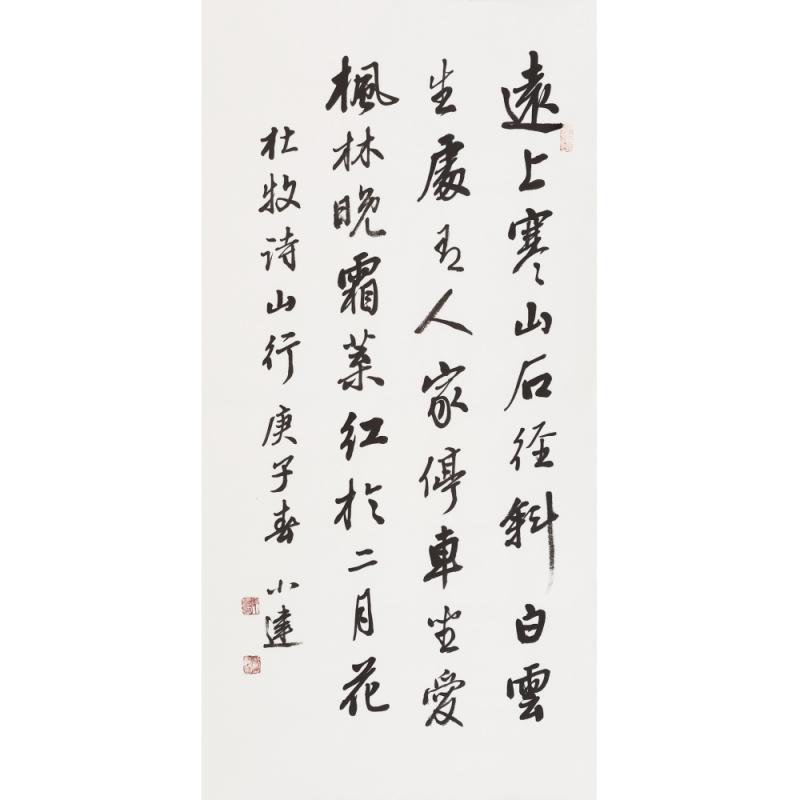 遠上寒山石徑斜白雲
生處有人家停車坐愛
楓林晚霜葉紅於二月花
杜牧诗山行庚子春小達